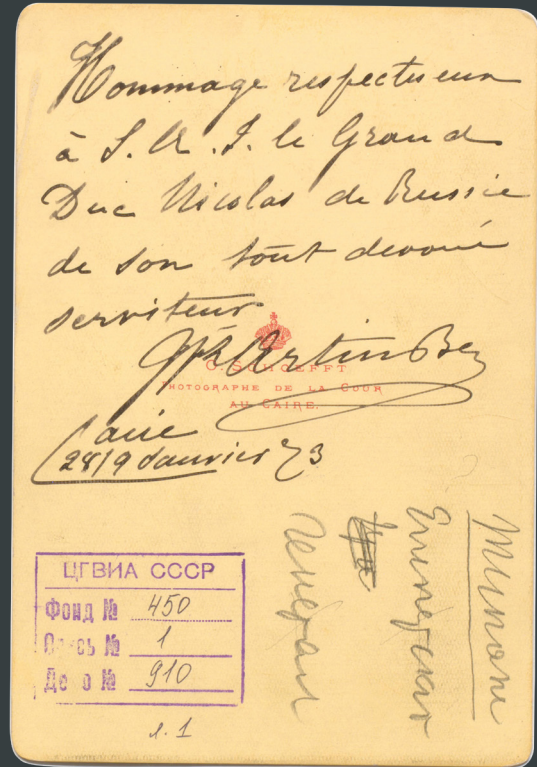 Hommage respectueux
à S. A. I. le Grand
Duc Nicolas de Russie
de son tout devoué
serviteur
Artin Bey
O. SCHOEFFT
PHOTOGRAPHE DE LA COUR
AU CAIRE.
Caire
28/9 Janvier 73
ЦГВИА СССР
Фонд № 450
Опись № 1
Дело № 910
л. 1
Генерал